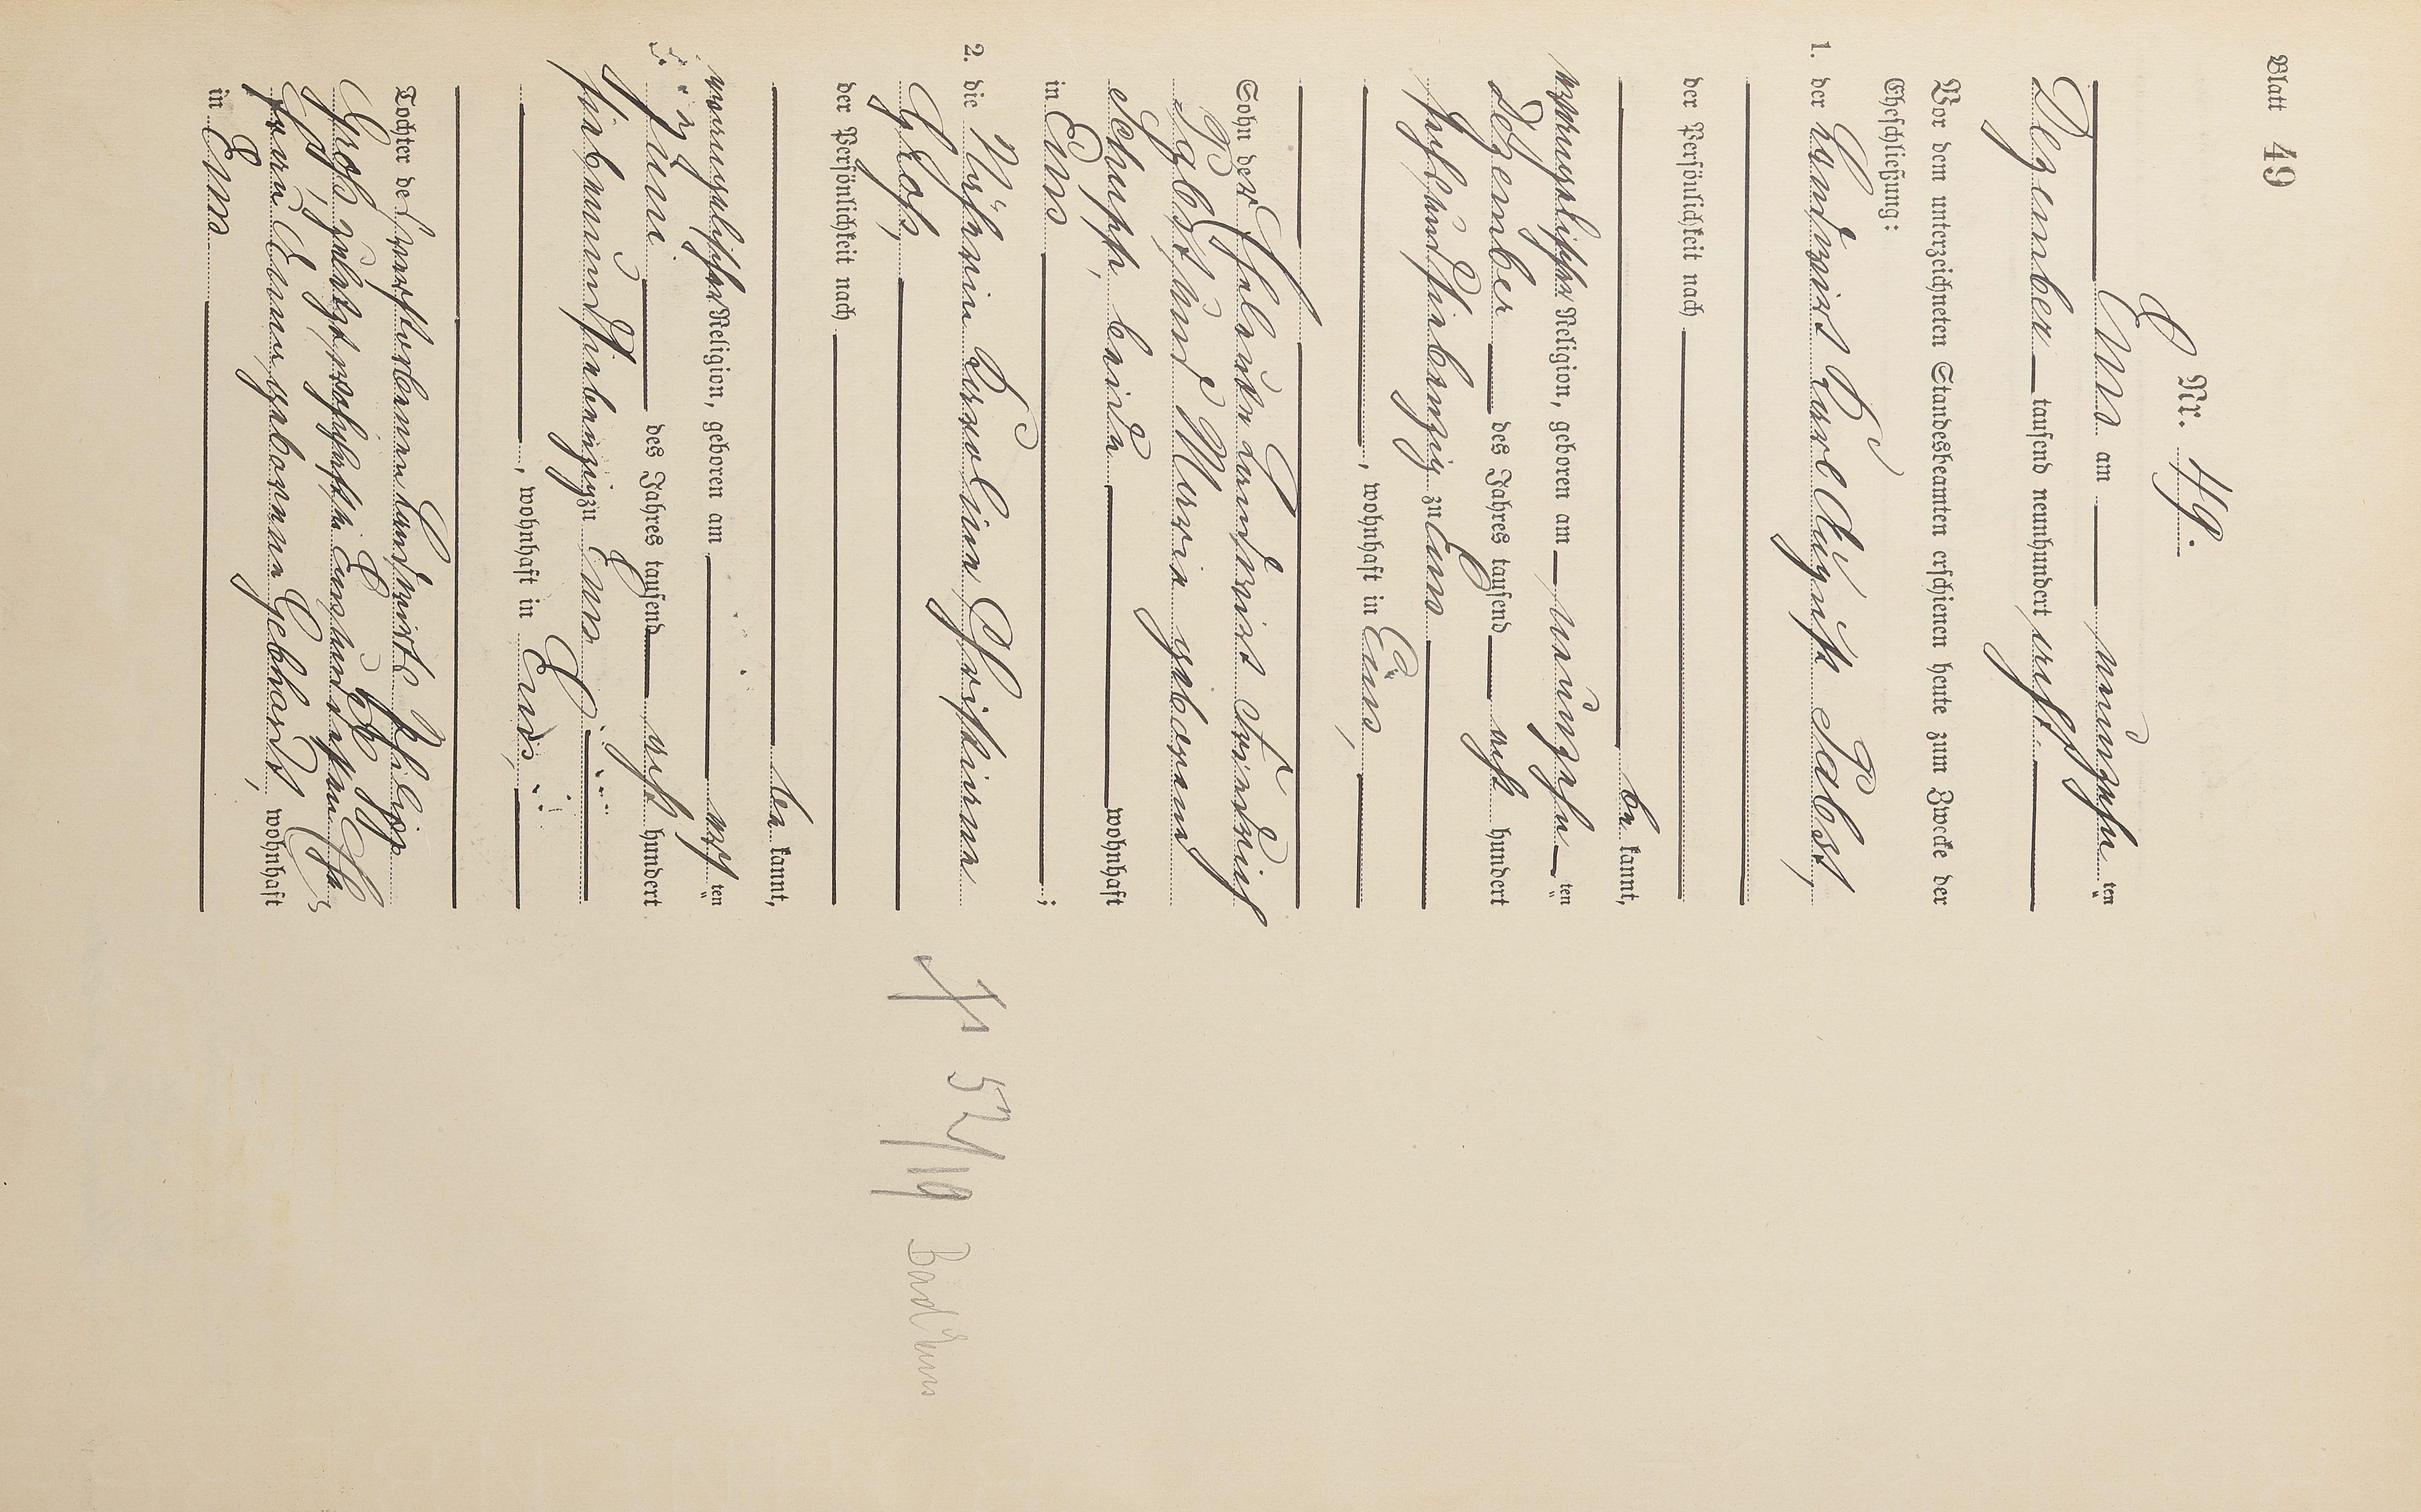 Blatt 49
Nr. 49.
Ems am neunzehnten
Dezember tausend neunhundert
Vor dem unterzeichneten Standesbeamten erschienen heute zum Zwecke der
Eheschließung:
1. der Landwirt Karl August
der Persönlichkeit nach
be kannt,
evangelischer Religion, geboren am neunzehnten
Dezember des Jahres tausend acht hundert
zu Ems
, wohnhaft in Ems,
Sohn der Eheleute Landwirt Friedrich
und geborene
Schupp, beide wohnhaft
in Ems ;
2. die Näherin Karoline Christiane
Groß,
der Persönlichkeit nach
be kannt,
evangelischer Religion, geboren am ersten
Juni des Jahres tausend acht hundert
siebenundsiebenzig zu Ems
, wohnhaft in Ems,
Tochter des verstorbenen Landwirts Philipp
Groß, zuletzt wohnhaft in Ems und dessen
geborene Gebhard, wohnhaft
in Ems
52/19 Bad Ems